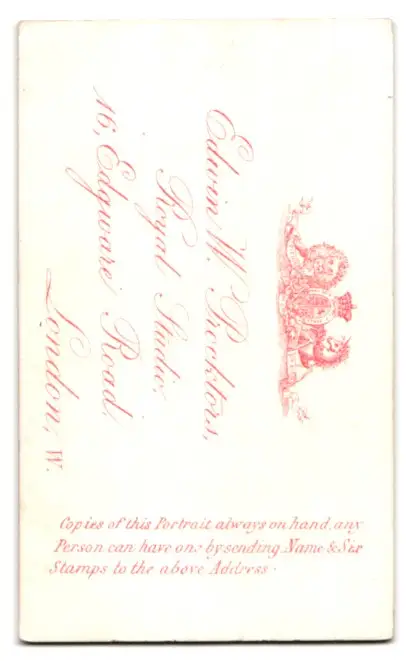 Edwin W. Procktors,
Royal Studio,
16, Edgware Road,
London, W.
Copies of this Portrait always on hand, any
Person can have one by sending Name & Six
Stamps to the above Address.